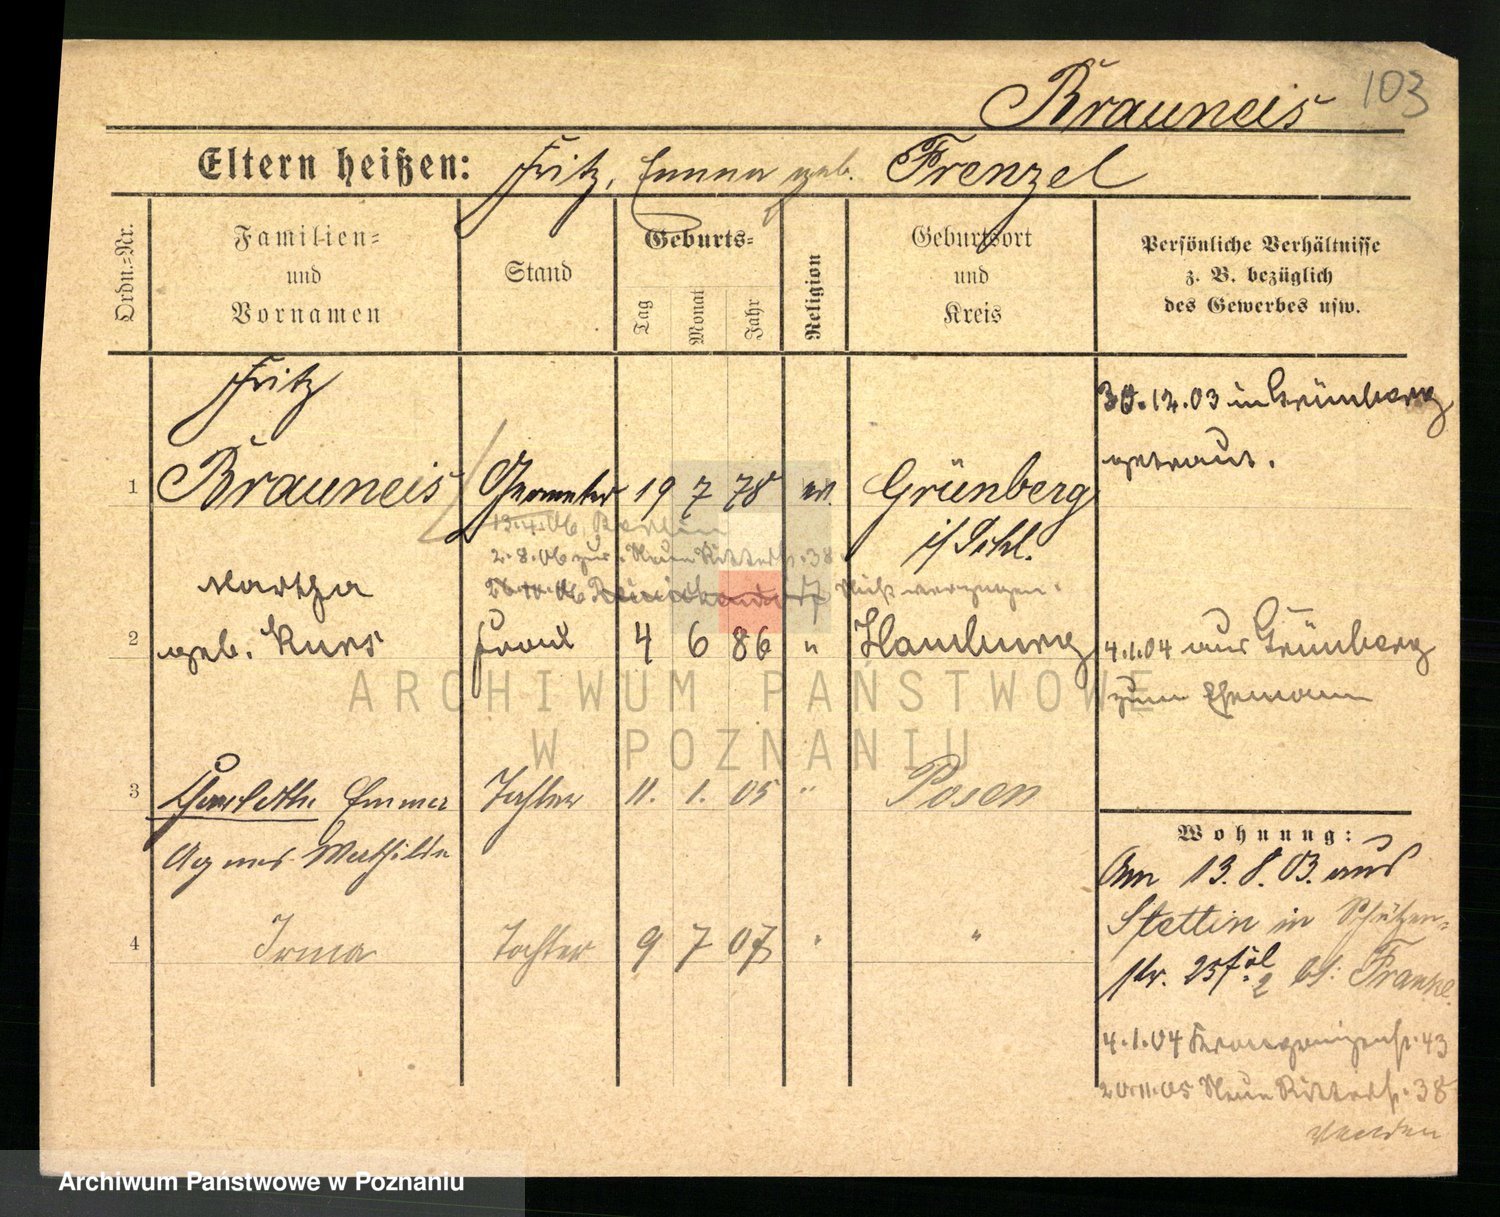 103
Brauneis
Eltern heißen: Fritz, Emma geb. Frenzel
Ordn.-Nr.
Familien-
und
Vornamen
Stand
Geburts-
Tag
Monat
Jahr
Religion
Geburtsort
und
Kreis
Persönliche Verhältnisse
z. B. bezüglich
des Gewerbes usw.
Fritz
1 Brauneis Geometer 19 7 78 ev. Grünberg
i/Schl.
30.12.03 in Grünberg
getraut.
13.4.06 Berlin
2.8.06 zur. Neue Ritterstr. 38
Nicht verzogen.
Martha
2 geb. Kurs Frau 4 6 86 " Hamburg
4.1.04 aus Grünberg
zum Ehemann
3 Emma Tochter 11. 1. 05 " Posen
Agnes Mathilde
4 Irma Tochter 9 7 07 " "
Wohnung:
Am 13.8.03. aus
Stettin in Schützen-
str. 25 bei Franke
4.1.04 Kronprinzenstr. 43
20.11.05 Neue Ritterstr. 38
ARCHIWUM PAŃSTWOWE
W POZNANIU
Archiwum Państwowe w Poznaniu